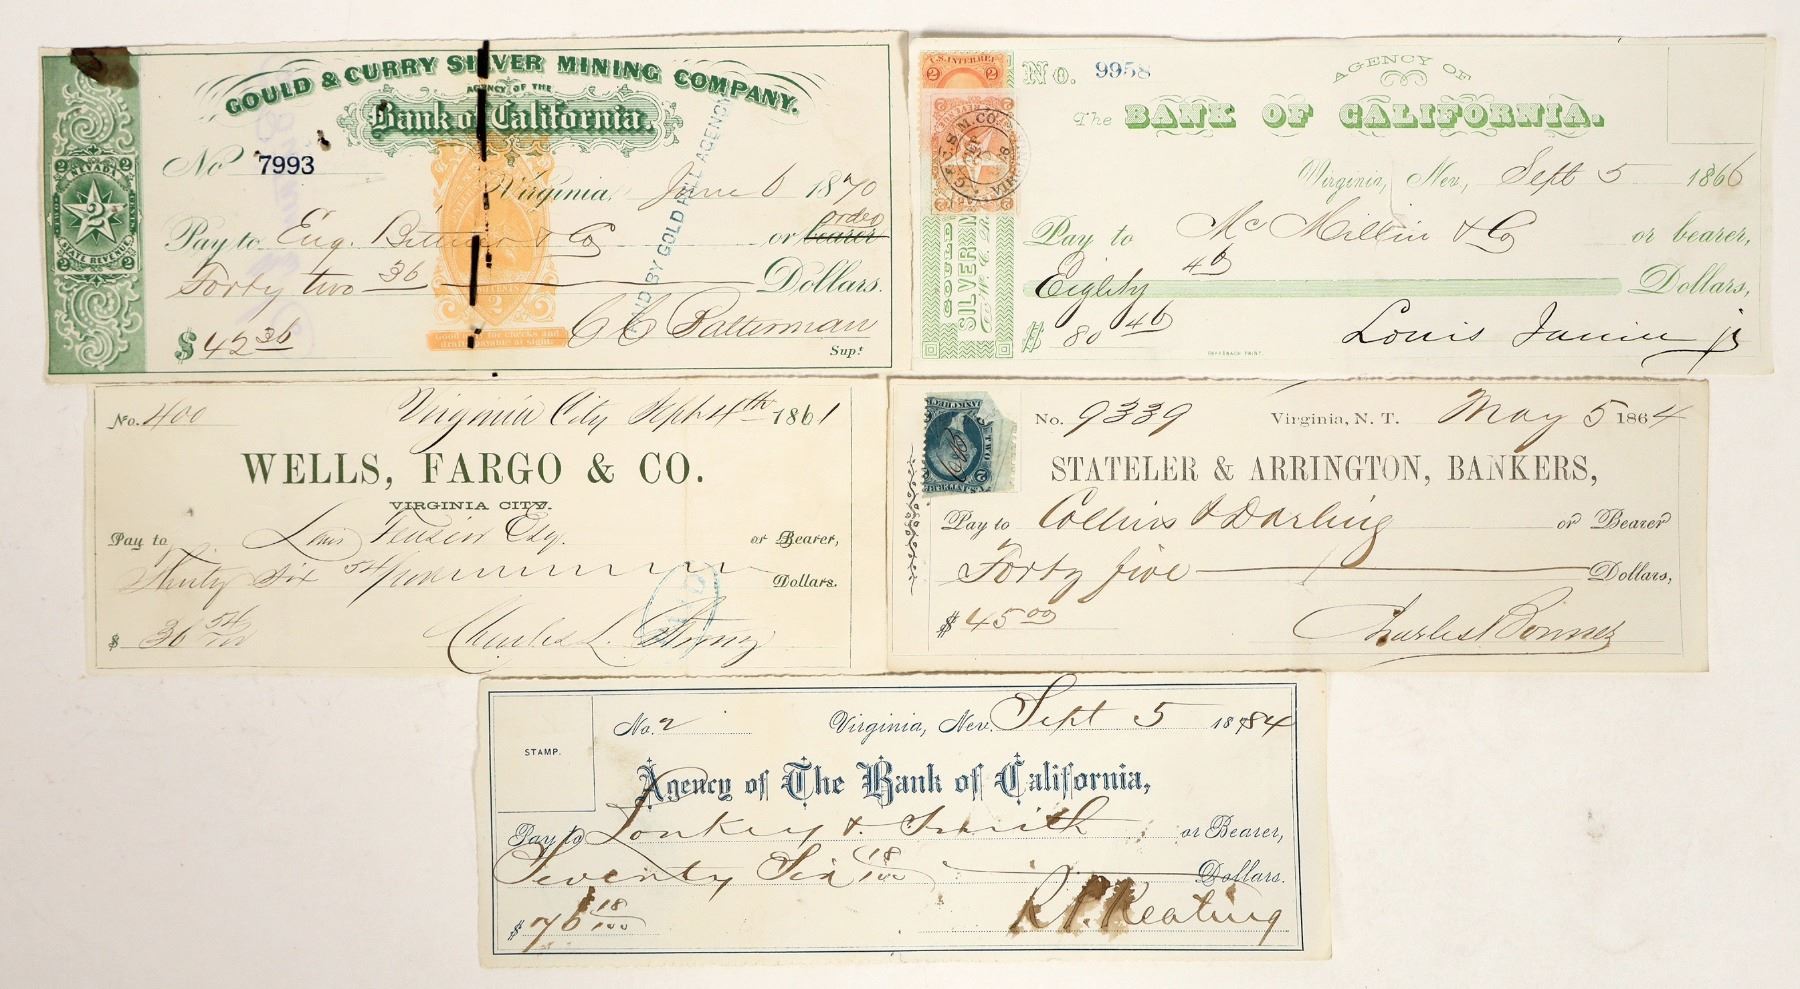 GOULD & CURRY SILVER MINING COMPANY.
AGENCY OF THE
Bank of California.
No 7993
Virginia, June 6 1870
Pay to Eug. & Co or bearer order
Forty two 36 Dollars.
$ 42 36
C C Batterman
Supt
PAID BY GOLD HILL AGENCY
NEVADA
2
TWO CENTS
STATE REVENUE
Good only for checks and
drafts payable at sight.
U.S. INTER. REV.
2 2
G. & C. S. M. CO.
No. 9958
AGENCY OF
The BANK OF CALIFORNIA.
Virginia, Nev, Sept 5 1866
Pay to McMillin & Co or bearer,
Eighty 46 Dollars,
$ 80 46
Louis Janin jr
GOULD
SILVER
No. 400
Virginia City Sept 4th 1861
WELLS, FARGO & CO.
VIRGINIA CITY.
Pay to Esq. or Bearer,
Thirty six 54/100 Dollars.
$ 36 54/100
Charles L. Strong
PAID
No. 9339 Virginia, N. T. May 5 1864
STATELER & ARRINGTON, BANKERS,
Pay to Collins & Darling or Bearer
Forty five Dollars,
$ 45 00
Charles Bonner
STAMP.
No. 2 Virginia, Nev. Sept 5 1884
Agency of The Bank of California,
Pay to Lonkey & Smith or Bearer,
Seventy Six 18/100 Dollars.
$ 76 18/100
R.P. Keating